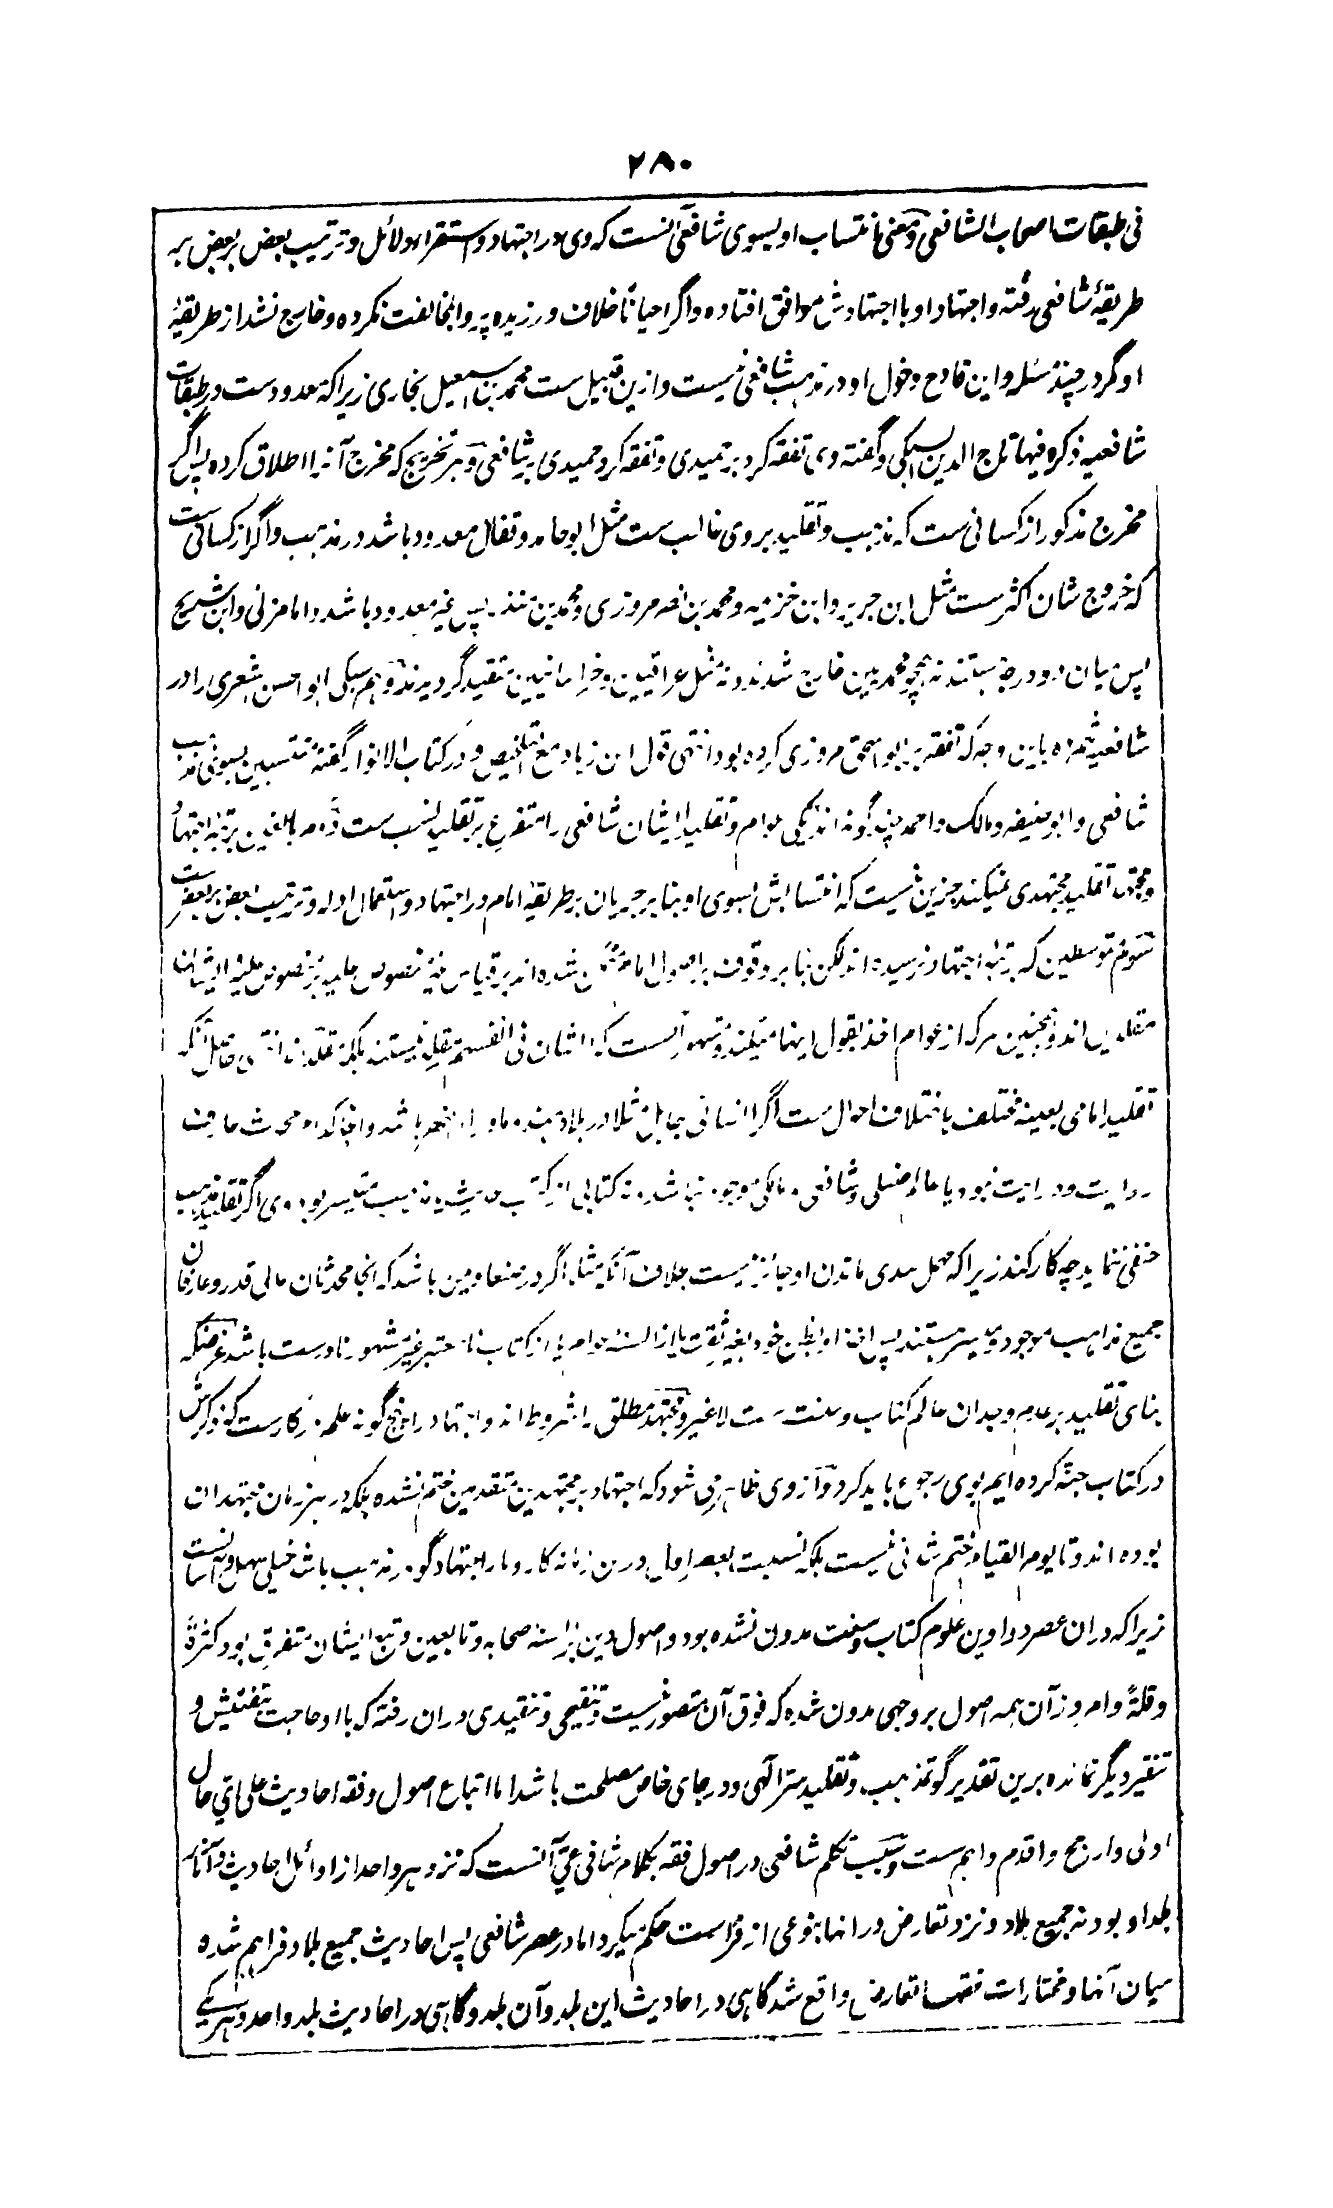 ۲۸۰
فی طبقات اصحاب الشافعی و معنی انتساب او بسوی شافعی آنست که وی در اجتهاد و استقراء دلائل و ترتیب بعض بر بعض بر
طریقهٔ شافعی رفته و اجتهاد او با اجتهادش موافق افتاده و اگر احیاناً خلاف ورزیده پروا بمخالفت نکرده و خارج نشد از طریقهٔ
او مگر در چند مسئله و این قادح دخول او در مذهب شافعی نیست و ازین قبیل ست محمد بن اسمعیل بخاری زیرا که معدودست در طبقات
شافعیه ذکره فیها تاج الدین السبکی و گفته وی تفقه کرد بر حمیدی و تفقه کرد حمیدی بر شافعی و هر تخریج که مخرج آنرا اطلاق کرده پس اگر
مخرج مذکور از کسانی ست که مذهب و تقلید بر وی غالب ست مثل ابو حامد و قفال معدود باشد در مذهب و اگر از کسانی ست
که خروج شان اکثر ست مثل ابن جریر و ابن خزیمه و محمد بن نصر مروزی و محمد بن منذر پس غیر معدود باشد و اما مزنی و ابن شریح
پس میان دو درجه هستند نه همچو محمدیین خارج شدند و نه مثل عراقیین و خراسانیین متقید گردیدند و هم سبکی ابو الحسن اشعری را در
شافعیه شمرده باین وجه که تفقه بر ابو اسحق مروزی کرده بود انتهی قول ابن زیاد مع التلخیص و در کتاب الانوار گفته منتسبین بسوی مذهب
شافعی و ابو حنیفه و مالک و احمد چند گونه اند یکی عوام و تقلید ایشان شافعی را متفرع بر تقلید منتسب ست دوم بالغین برتبهٔ اجتهاد
و مجتهد تقلید مجتهدی نمیکند جزین نیست که انتسابش بسوی او بنا بر جریان بر طریقهٔ امام در اجتهاد و استعمال ادله و ترتیب بعض بر بعض ست
سوم متوسطین که برتبهٔ اجتهاد نرسیده اند لیکن بنا بر وقوف بر اصول امام متمکن شده اند بر قیاس غیر منصوص علیه بر منصوص علیه ایشان
مقلدین اند و همچنین هر که از عوام اخذ بقول اینها میکند و مشهور آنست که ایشان فی انفسهم مقلد نیستند بلکه مقلدند انتهی حاصل آنکه
تقلید امامی بعینه مختلف باختلاف احوال ست اگر انسانی جاهل مثلا در بلاد هند و ماوراء النهر باشد و آنجا کدام محدث عارف
روایت و درایت نبود یا عالم حنبلی و شافعی و مالکی موجود نباشد و نه کتابی از کتب میسر بود وی اگر تقلید مذهب
حنفی ننماید چه کار کند زیرا که مهمل سدی ماندن او جائز نیست بخلاف آنکه مثلا اگر در صنعا و یمن باشد که آنجا محدثان عالی قدر و عارفان
جمیع مذاهب موجود و میسر هستند پس اخذ او بظن خود بغیر ثقت یا از السنهٔ عوام یا از کتاب نامعتبر غیر مشهور نادرست باشد غرضکه
بنای تقلید بر عدم وجدان عالم کتاب و سنت ست لا غیر و مجتهد مطلق را شروط اند و اجتهاد را پنج گونه علم درکارست که ذکرش
در کتاب جنه کرده ایم بوی رجوع باید کرد و از وی ظاهر می شود که اجتهاد بر مجتهدین متقدمین ختم نشده بلکه در هر زمان مجتهدان
بوده اند و تا یوم القیام ختم شدنی نیست بلکه نسبت بعصر اول درین زمانه کار و بار اجتهاد گو در مذهب باشد خیلی سهل و آسانست
زیرا که دران عصر دواوین علوم کتاب و سنت مدون نشده بود و اصول دین بر السنه صحابه و تابعین و تبع ایشان متفرق بود کثرةً
و قلةً و امروز آن همه اصول بر وجهی مدون شده که فوق آن متصور نیست و تنقیحی و تنقیدی دران رفته که با او حاجت بتفتیش و
تنقیر دیگر نمانده برین تقدیر گو تمذهب و تقلید سرّ الٰهی و در جای خاص مصلحت باشد اما اتباع اصول و فقه احادیث علی ای حال
اولی و ارجح و اقدم و اهم ست و سبب تکلم شافعی در اصول فقه بکلام شافی عی آنست که نزد هر واحد از اوائل احادیث و آثار
بلد او بود نه جمیع بلاد و نزد تعارض در انها بنوعی از فراست حکم میکرد اما در عصر شافعی پس احادیث جمیع بلاد فراهم شده
میان آنها و مختارات فقها تعارض واقع شد گاهی در احادیث این بلد و آن بلد و گاهی در احادیث بلد واحد و هر یکے